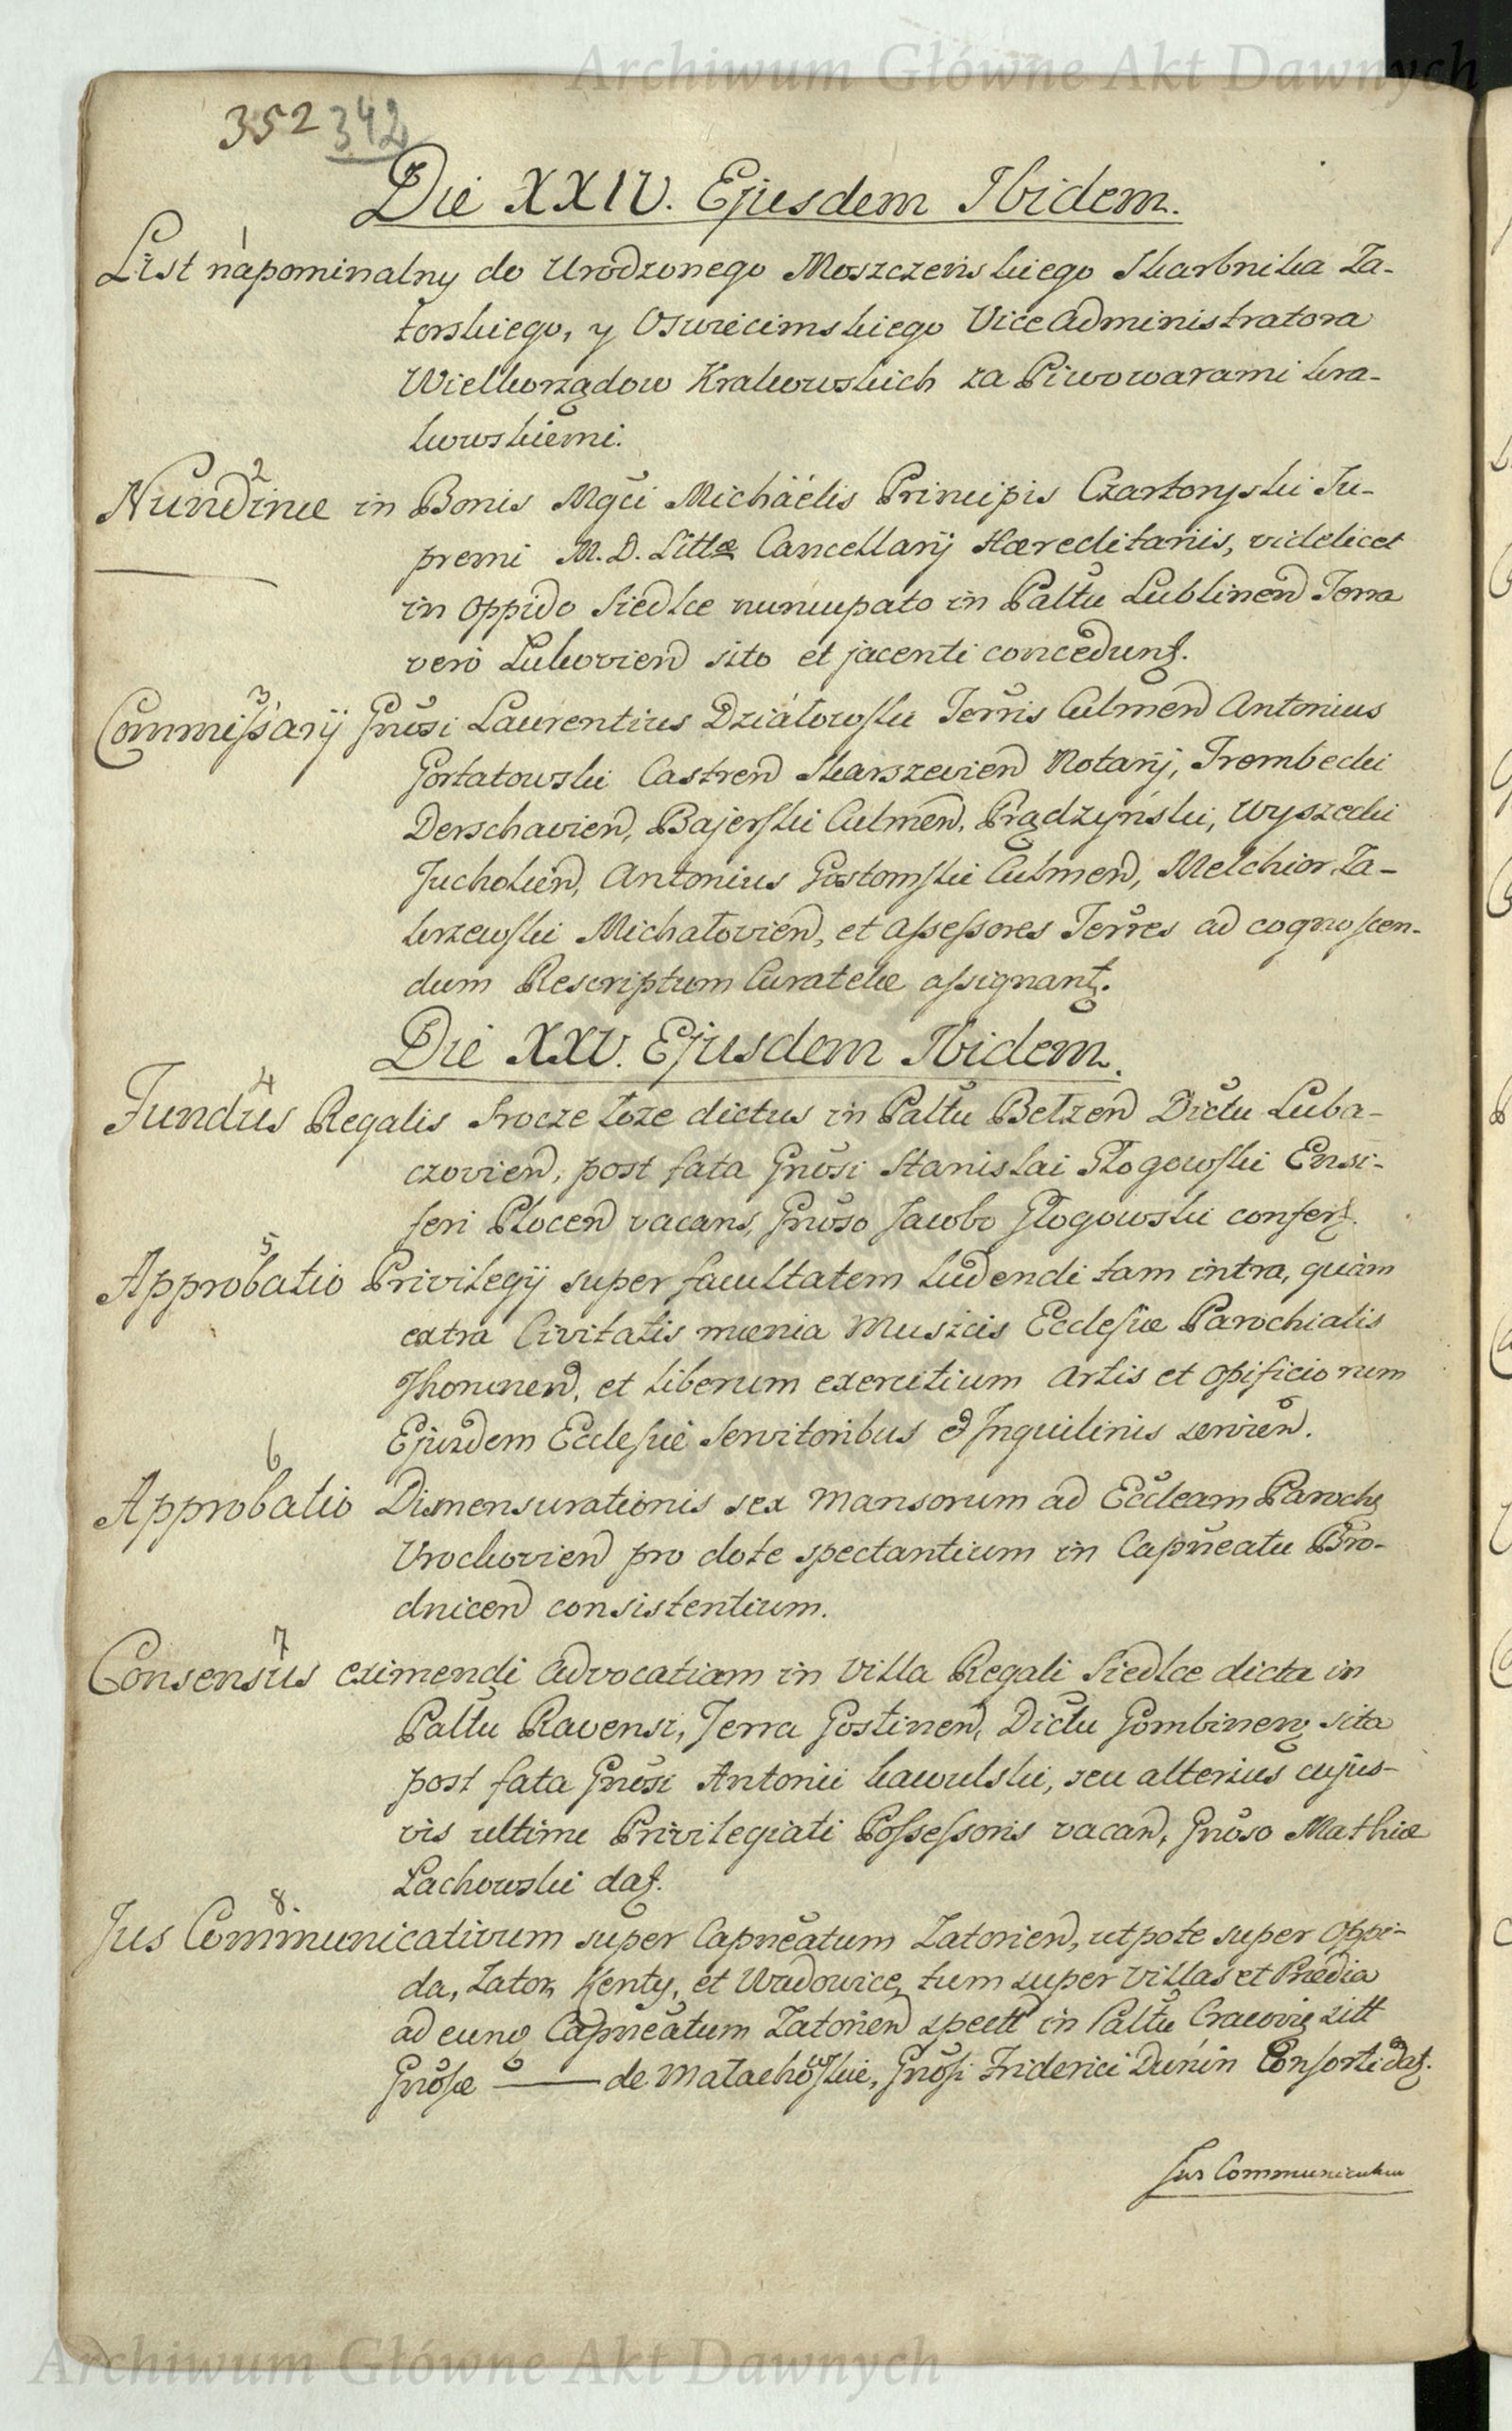 Archiwum Główne Akt Dawnych
352 342
Die XXIV. Ejusdem Ibidem.
1
List napominalny do Urodzonego Moszczeńskiego Skarbnika Za-
torskiego, y Oswiecimskiego Vice Administratora
Wielkorządow Krakowskich za Piwowarami kra-
kowskiemi.
2
Nundinæ in Bonis Mgci Michäelis Principis Czartoryski Su-
premi M. D. Littæ Cancellarij Hæreditariis, videlicet
in Oppido Siedlce nuncupato in Paltu Lublinen Terra
vero Lukovien sito et jacenti concedunt.
3
Commissarij Gnosi Laurentius Działowski Terris Culmen Antonius
Gortatowski Castren Skarszevien Notarij, Trembecki
Derschavien, Bajerski Culmen, Prądzyński, Wyszecki
Tucholien, Antonius Gostomski Culmen, Melchior Za-
krzewski Michałovien, et Assessores Terres ad cognoscen-
dum Rescriptum Curatelæ assignant.
Die XXV. Ejusdem Ibidem.
4
Fundus Regalis Srocze Łoze dictus in Paltu Belzen Dictu Luba-
czovien, post fata Gnosi Stanislai Głogowski Ensi-
feri Plocen vacans, Gnoso Jacobo Głogowski confert.
5
Approbatio Privilegij super facultatem ludendi tam intra, quam
extra Civitatis mænia Musicis Ecclesiæ Parochialis
Thorunen, et liberum exercitium Artis et Opificiorum
Ejusdem Ecclesiæ Servitoribus & Inquilinis servien.
6
Approbatio Dismensurationis sex Mansorum ad Eccleam Paroch
Vrockovien pro dote spectantium in Capneatu Bro-
dnicen consistentium.
7
Consensus eximendi Advocatiam in Villa Regali Siedlce dicta in
Paltu Ravensi, Terra Gostinen, Dictu Gombinen sita
post fata Gnosi Antonii kawulski, seu alterius cujus-
vis ultimi Privilegiati Possessoris vacan, Gnoso Mathiæ
Lachowski dat.
8.
Jus Communicativum super Capneatum Zatorien, utpote super Oppi-
da, Zator, Kenty, et Wadowice, tum super Villas et Prædia
ad eunq Capneatum Zatorien spectt in Paltu Cracovię sitt
Gnosæ —— de Małachowskie, Gnosi Friderici Dunin Consorti dat.
Jus Communicativu
Archiwum Główne Akt Dawnych